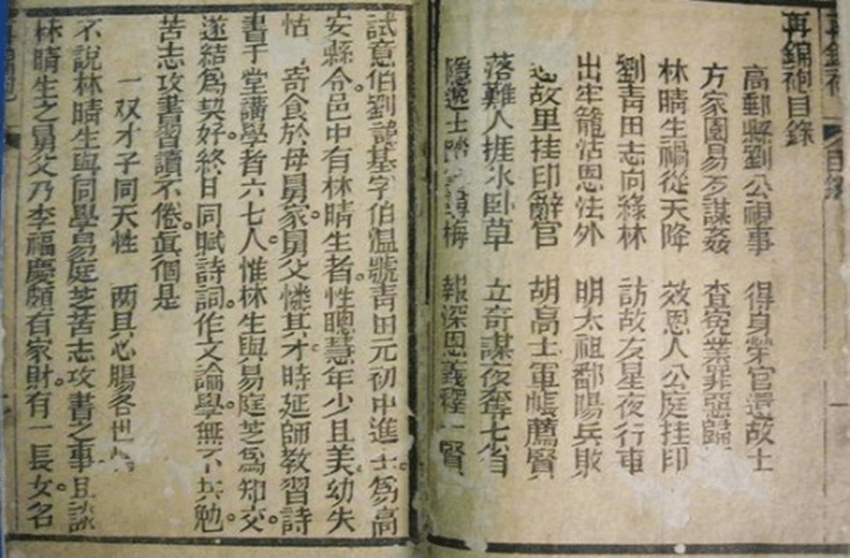 再錦袍
目錄
再錦袍目錄
高郵縣劉公視事　得身榮官還故土
方家園易歹謀姦　查冤業罪惡歸
林晴生禍從天降　效恩人公庭挂印
劉青田志向綠林　訪故友星夜行車
出牢籠沾恩法外　明太祖鄱陽兵敗
故里挂印辭官　胡高士軍帳薦賢
落難人捱氷卧草　立奇謀夜奪七省
隱逸士踏雪尋梅　報深恩義釋一賢
試意伯劉諱基字伯溫號青田元初中進士為高
安縣令。邑中有林晴生者。性聰慧年少且美。幼失
怙。寄食於母舅家。舅父憐其才時延師教習詩
書于堂講學者六七人。惟林生與易庭芝為知交。
遂結為契好。終日同賦詩詞。作文論學。無不共勉。
苦志攻書習讀不倦。眞個是
一双才子同天性　两具心腸各世
不說林晴生與同學易庭芝苦志攻書之事。且談
林晴生之舅父乃李福慶。頗有家財。有一長女名